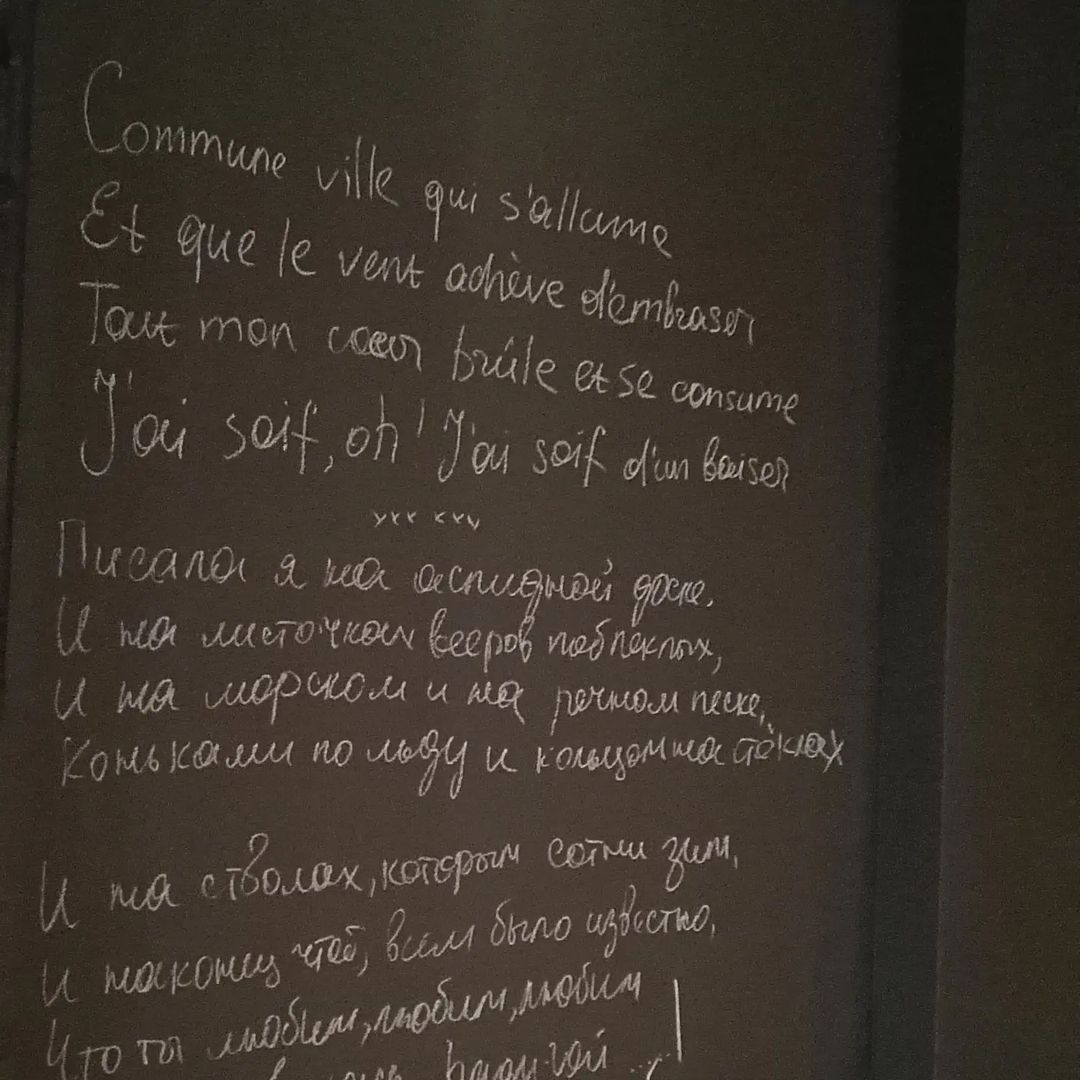 Commune ville qui s'allume
Et que le vent achève d'embraser
Tout mon cœur brûle et se consume
J'ai soif, oh! J'ai soif d'un baiser
Писала я на аспидной доске,
И на листочках вееров поблеклых,
И на морском и на речном песке,
Коньками по льду и кольцом на стёклах
И на стволах, которым сотни зим,
И наконец чтоб, всем было известно,
Что ты любим, любим, любим